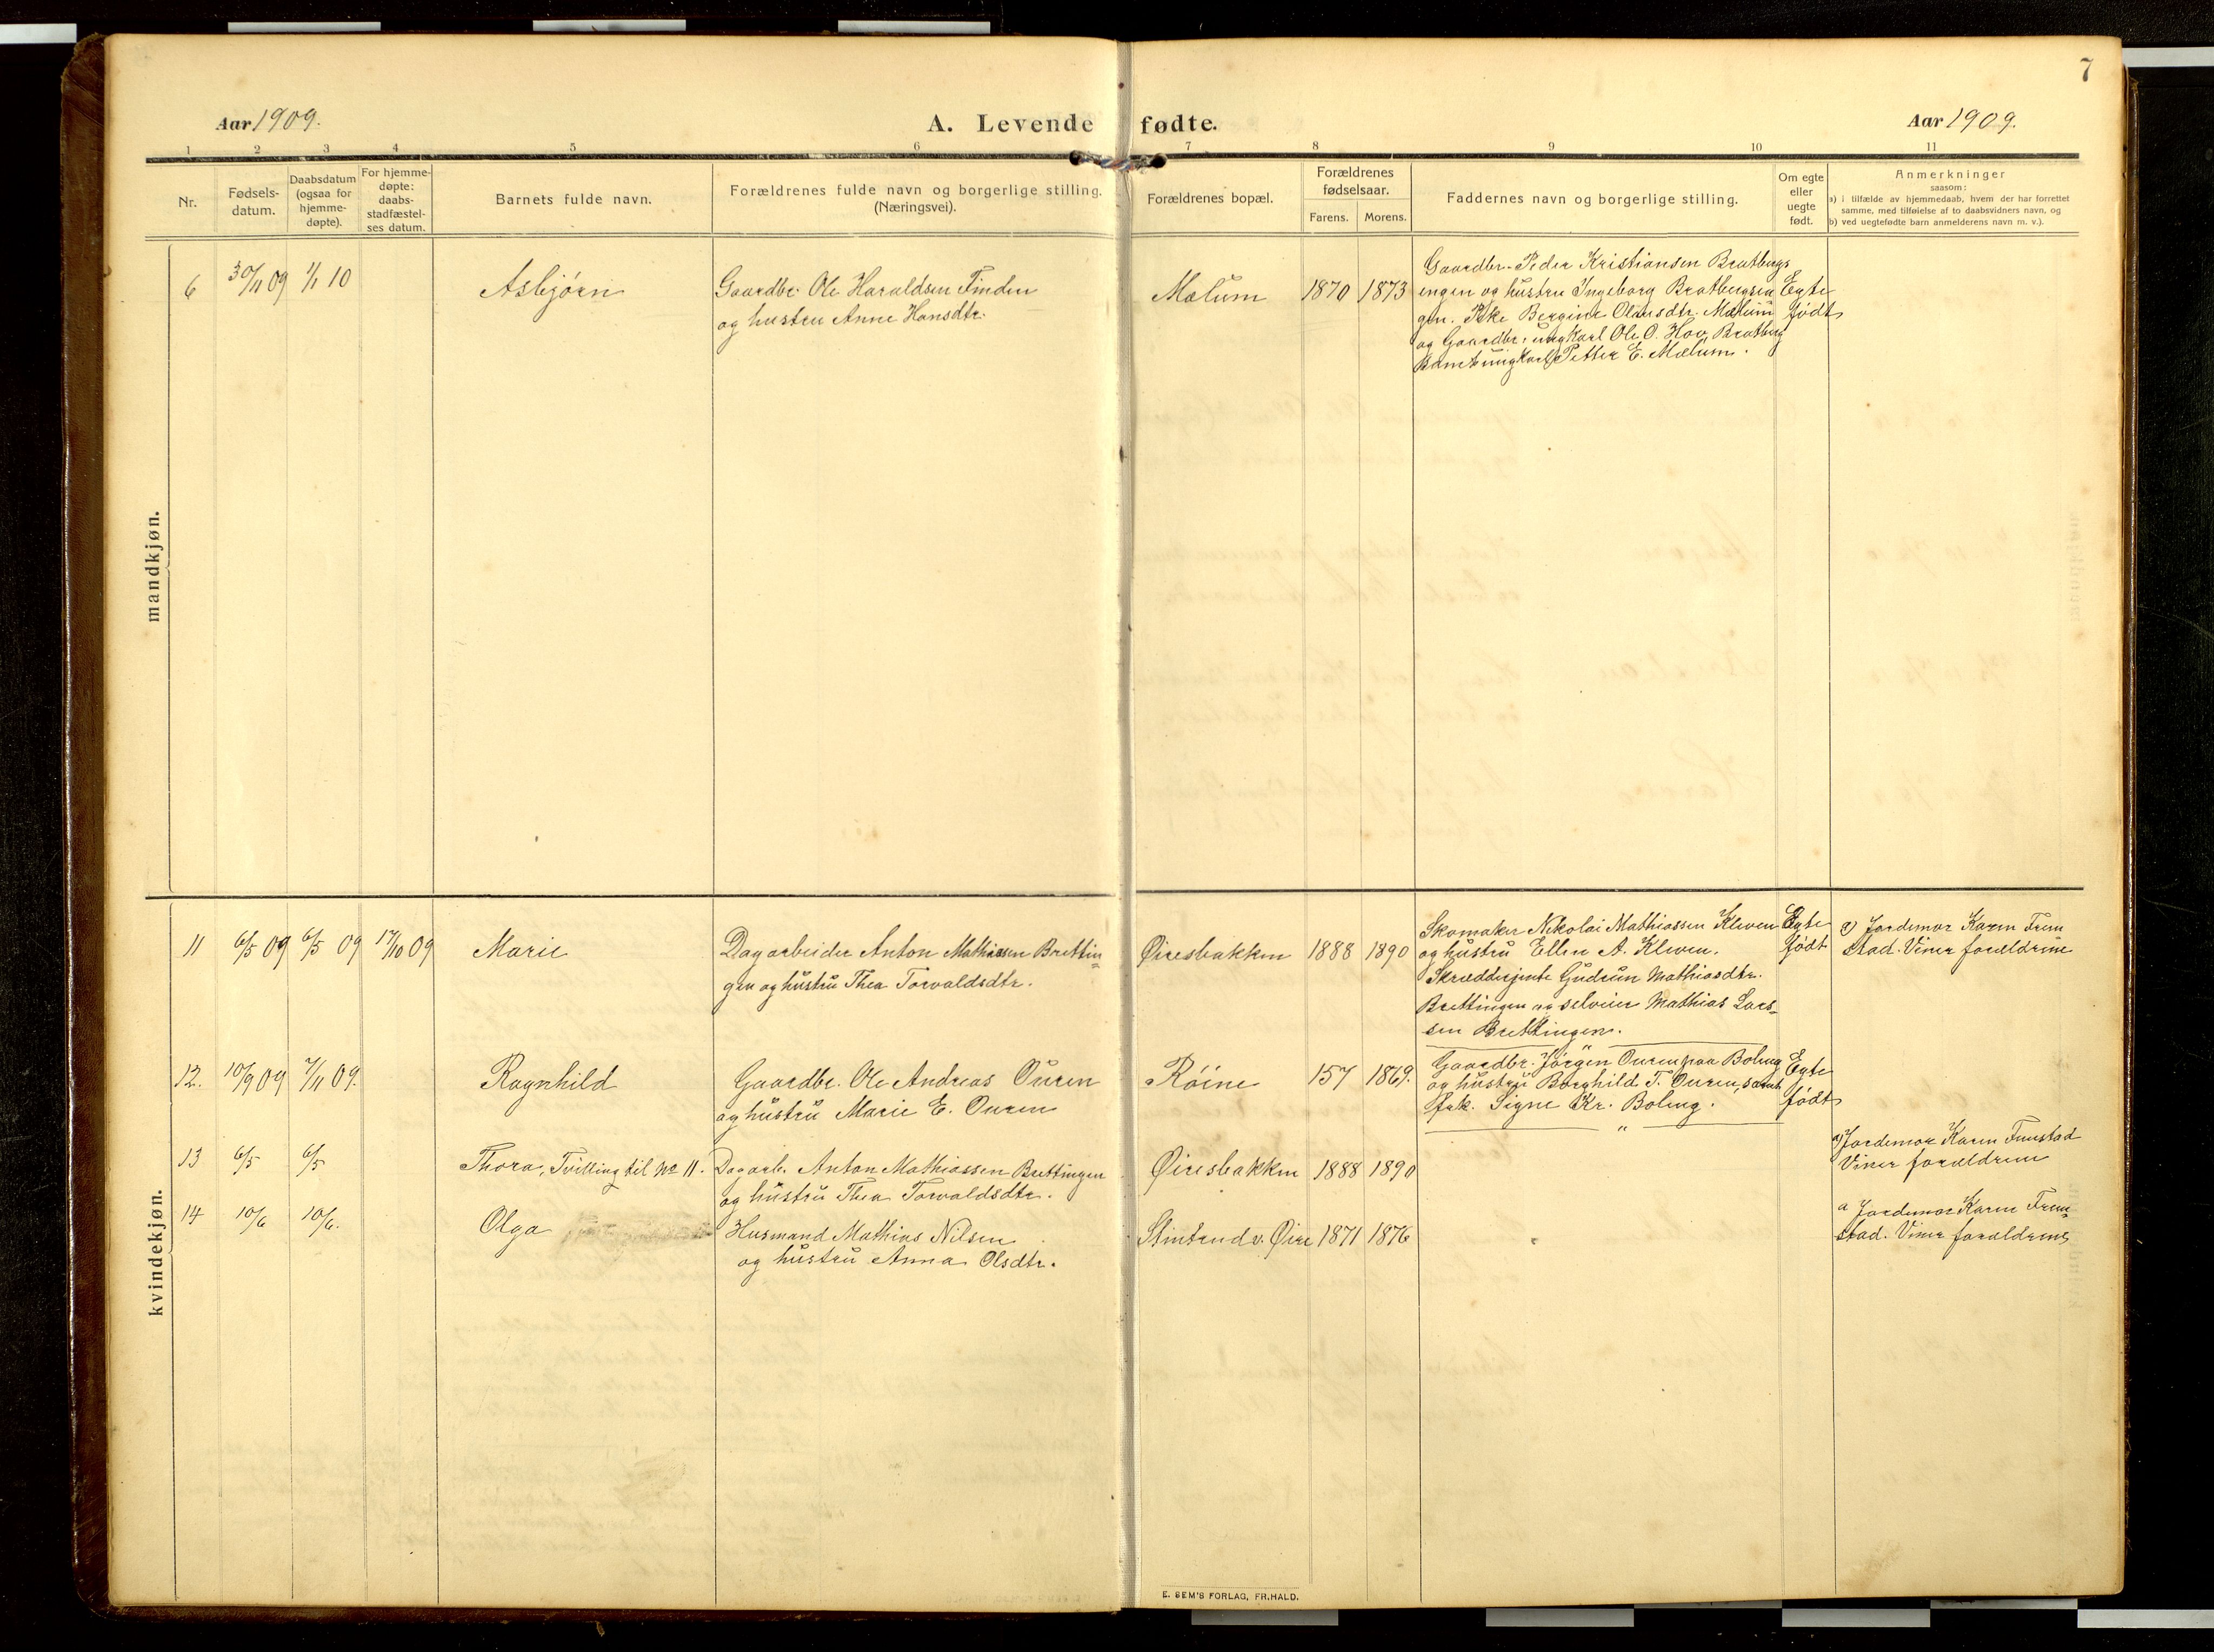 7
Aar 1909.
A. Levende fødte.
Aar 1909.
1 2 3 4 5 6 7 8 9 10 11
Nr.
Fødsels-
datum.
Daabsdatum
(ogsaa for
hjemme-
døpte).
For hjemme-
døpte:
daabs-
stadfæstel-
ses datum.
Barnets fulde navn.
Forældrenes fulde navn og borgerlige stilling.
(Næringsvei).
Forældrenes bopæl.
Forældrenes
fødselsaar.
Farens. Morens.
Faddernes navn og borgerlige stilling.
Om egte
eller
uegte
født.
Anmerkninger
saasom:
a) i tilfælde av hjemmedaab, hvem der har forrettet
samme, med tilføielse af to daabsvidners navn, og
b) ved uegtefødte barn anmelderens navn m. v.).
mandkjøn.
6
30/11 09
1/1 10
Asbjørn
Gaardbr. Ole Haraldsen Finden
og hustru Anne Hansdtr.
Mælum
1870
1873
Gaardbr. Peder Kristiansen Bratbergs
engen og hustru Ingeborg Bratbergsen
gen. Pike Bergine Olausdtr. Mælum
og Gaardbr. ungkarl Ole O. Hov, Bratberg
samt ungkarl Petter E. Mælum.
Egte
født
kvindekjøn.
11
6/5 09
6/5 09
17/10 09
Marie
Dagarbeider Anton Mathiassen Brettin
gen og hustru Thea Torvaldsdtr.
Øiresbakken
1888
1890
Skomaker Nikolai Mathiassen Kleven
og hustru Ellen A. Kleven.
Skrædderjente Gudrun Mathiasdtr.
Brettingen og selveier Mathias Lars-
sen Brettingen.
Egte
født
a) Jordemor Karen Frem
stad. Viner forældrene
12.
10/9 09
7/11 09.
Ragnhild
Gaardbr. Ole Andreas Ouren
og hustru Marie E. Ouren
Røine
157
1869.
Gaardbr. Jørgen Ouren paa Boleng
og hustru Borghild T. Ouren, samt
frk. Signe Kr. Boleng.
"
Egte
født
13
6/5
6/5
Thora, Tvilling til No 11.
Dagarb. Anton Mathiassen Brettingen
og hustru Thea Torvaldsdtr.
Øiresbakken
1888
1890
a) Jordemor Karen Fremstad
Viner forældrene
14
10/6
10/6.
Olga
Husmand Mathias Nilsen
og hustru Anna Olsdtr.
1871
1876
a Jordemor Karen Frem-
stad. Viner forældrene
E. SEM'S FORLAG, FR.HALD.